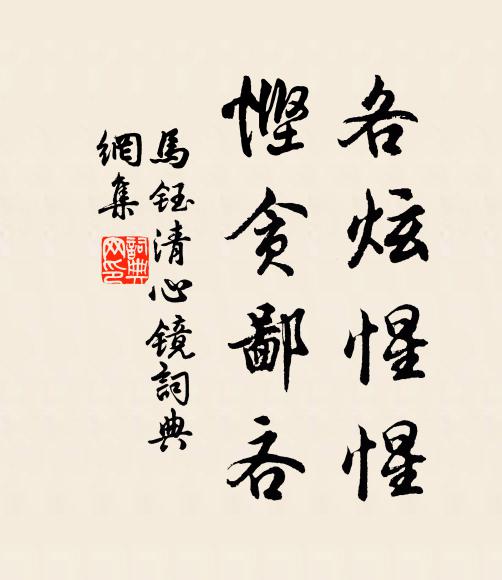 各炫惺惺
慳贪鄙吝
馬鈺清心镜詞典
網集
詞典网印